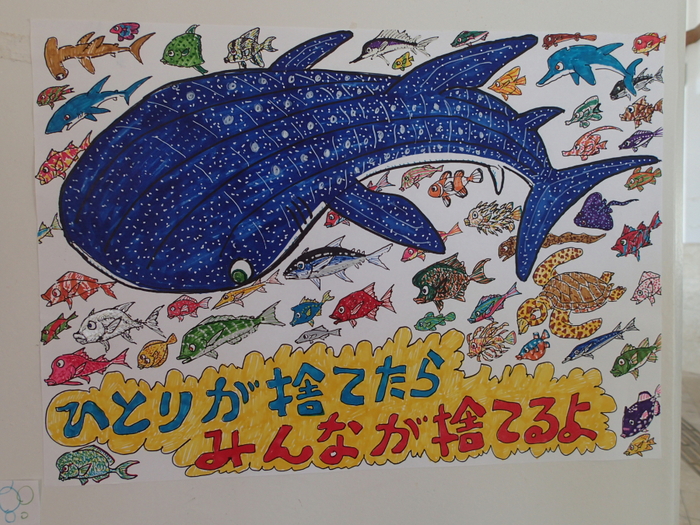 ひとりが捨てたら
みんなが捨てるよ